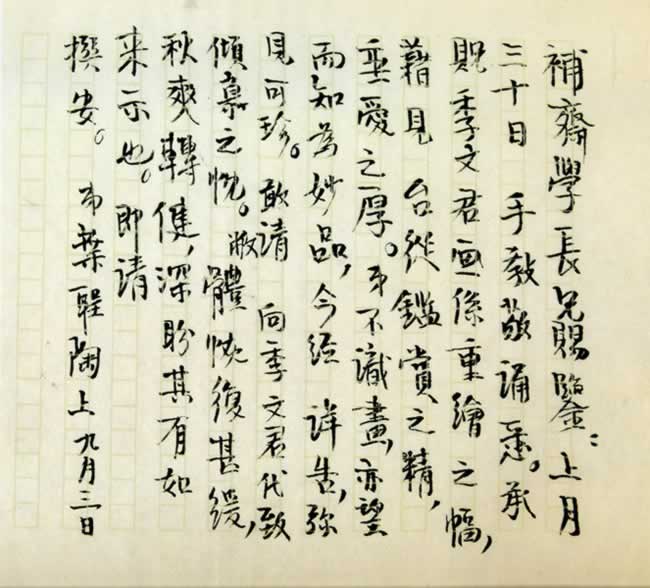 補齋學長兄賜鑒：上月
三十日　手教敬誦悉。承
貺季文君畫係重繪之幅，
藉見　台從鑑賞之精，
垂愛之厚。弟不識畫，亦望
而知為妙品，今經　詳告，弥
見可珍。敢請　向季文君代致
傾慕之忱。賤體恢復甚緩，
秋爽轉健，深盼其有如
来示也。即請
撰安。　弟葉聖陶上　九月三日